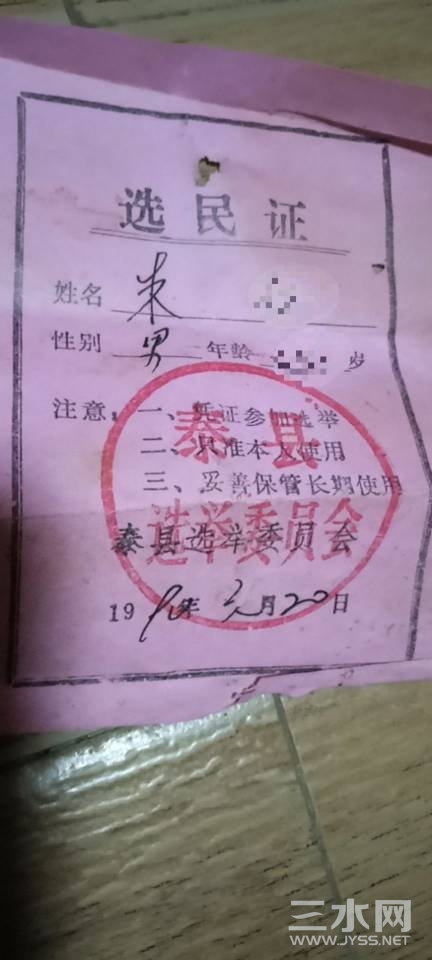 选民证
姓名 朱
性别 男 年龄 岁
注意：一、凭证参加选举
二、只准本人使用
三、妥善保管长期使用
泰县
选举委员会
泰县选举委员会
19 年 月20日
三水网
WWW.JYSS.NET